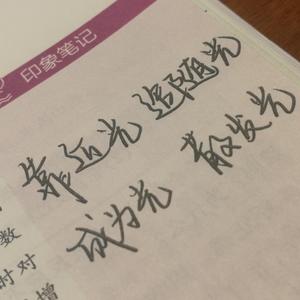 印象笔记
靠近光 追随光
成为光 散发光
数
时对
增